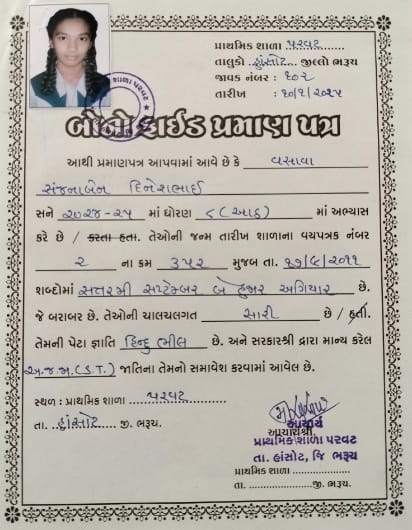 પ્રાથમિક શાળા પરવટ
તાલુકો હાંસોટ જીલ્લો ભરૂચ
જાવક નંબર : ૧૦૨
તારીખ : ૧૦/૧/૨૦૨૫
શાળા પરવટ
બોનો ફાઈડ પ્રમાણ પત્ર
આથી પ્રમાણપત્ર આપવામાં આવે છે કે વસાવા
સંજનાબેન દિનેશભાઈ
સને ૨૦૨૪-૨૫ માં ધોરણ ૮ (આઠ) માં અભ્યાસ
કરે છે / કરતા હતા. તેઓની જન્મ તારીખ શાળાના વયપત્રક નંબર
૨ ના ક્રમ ૩૫૨ મુજબ તા. ૧૭/૯/૨૦૧૧
શબ્દોમાં સત્તરમી સપ્ટેમ્બર બે હજાર અગિયાર છે.
જે બરાબર છે. તેઓની ચાલચલગત સારી છે / હતી.
તેમની પેટા જ્ઞાતિ હિન્દુ ભીલ છે. અને સરકારશ્રી દ્વારા માન્ય કરેલ
અ.જ.જા.(S.T.) જાતિના તેમનો સમાવેશ કરવામાં આવેલ છે.
સ્થળ : પ્રાથમિક શાળા પરવટ
તા. હાંસોટ જી. ભરૂચ.
આચાર્ય
આચાર્યશ્રી
પ્રાથમિક શાળા પરવટ
તા. હાંસોટ, જિ ભરૂચ
પ્રાથમિક શાળા
તા. જી. ભરૂચ.